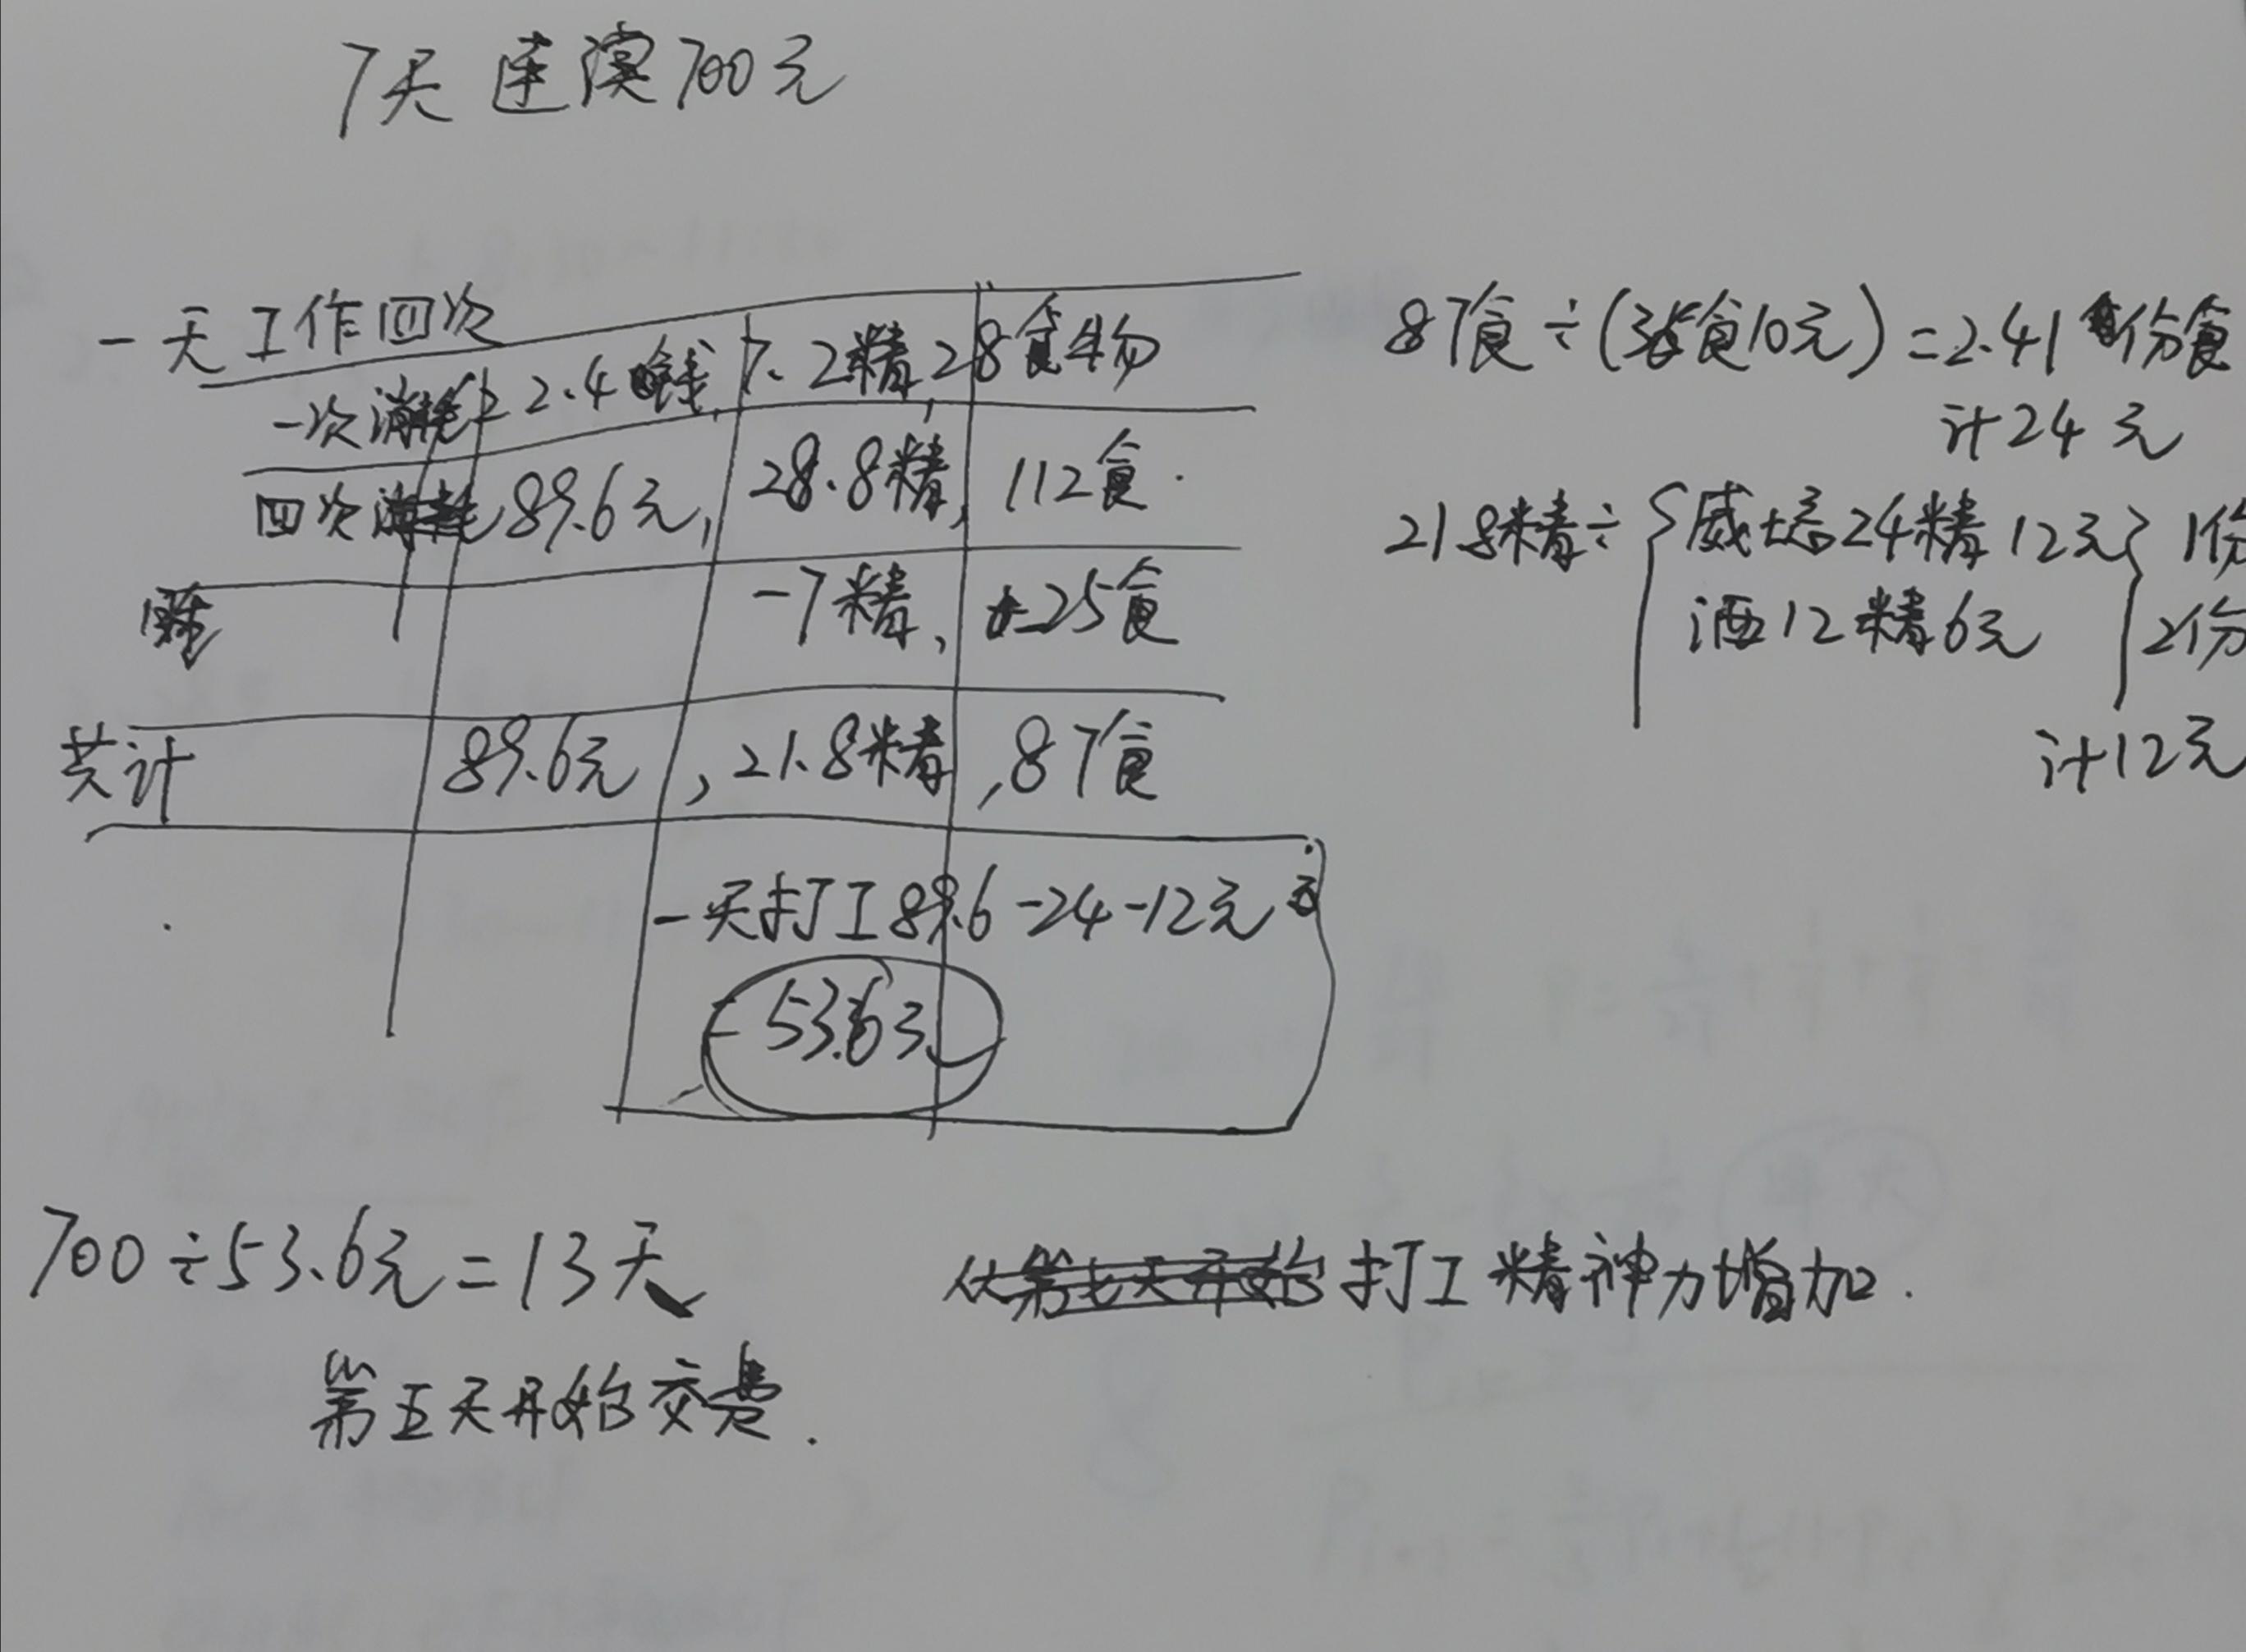 7天 连演700元
一天工作四次
一次消耗 22.4钱, 7.2精 28食物
四次消耗 89.6元, 28.8精, 112食.
睡 -7精, -25食
共计 89.6元, 21.8精, 87食
一天打工 89.6-24-12元
= 53.6元
87食÷(36食10元)=2.41份食
计24元
21.8精÷ 威士忌24精12元 1份
酒12精6元 2份
计12元
700÷53.6元=13天
打工精神力增加.
第五天开始交费.